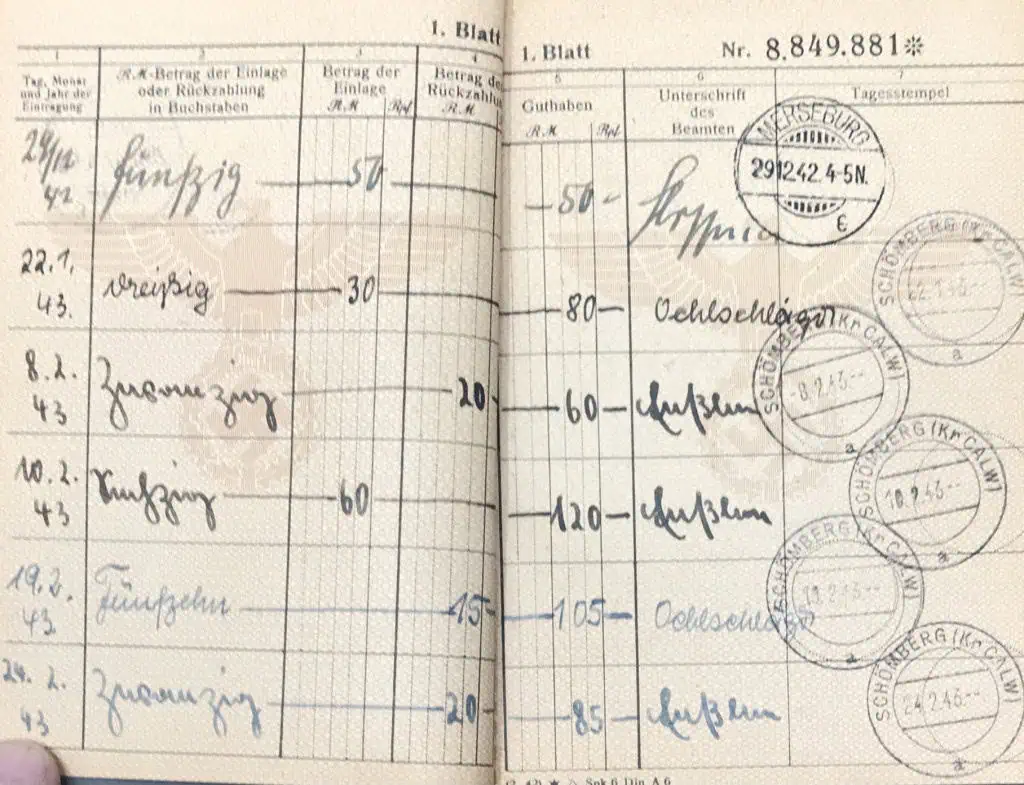 1. Blatt
1 2 3 4
Tag, Monat und Jahr der Eintragung
RM-Betrag der Einlage oder Rückzahlung in Buchstaben
Betrag der Einlage RM Rpf
Betrag der Rückzahlung RM
29/12 42 fünfzig 50
22.1. 43. dreißig 30
8.2. 43 Zwanzig 20
10.2. 43 60
19.2. 43. Fünfzehn 15
24.2. 43 Zwanzig 20
1. Blatt Nr. 8.849.881*
5 6 7
Guthaben RM Rpf
Unterschrift des Beamten
Tagesstempel
50
MERSEBURG 29.12.42.4-5N. c
80 Oehlschläger
SCHÖMBERG (Kr CALW) 22.1.43 a
60
SCHÖMBERG (Kr CALW) -8.2.43 a
120
SCHÖMBERG (Kr CALW) 10.2.43 a
105 Oehlschläger
SCHÖMBERG (Kr CALW) 19.2.43 a
85
SCHÖMBERG (Kr CALW) 24.2.43 a
Din A 6